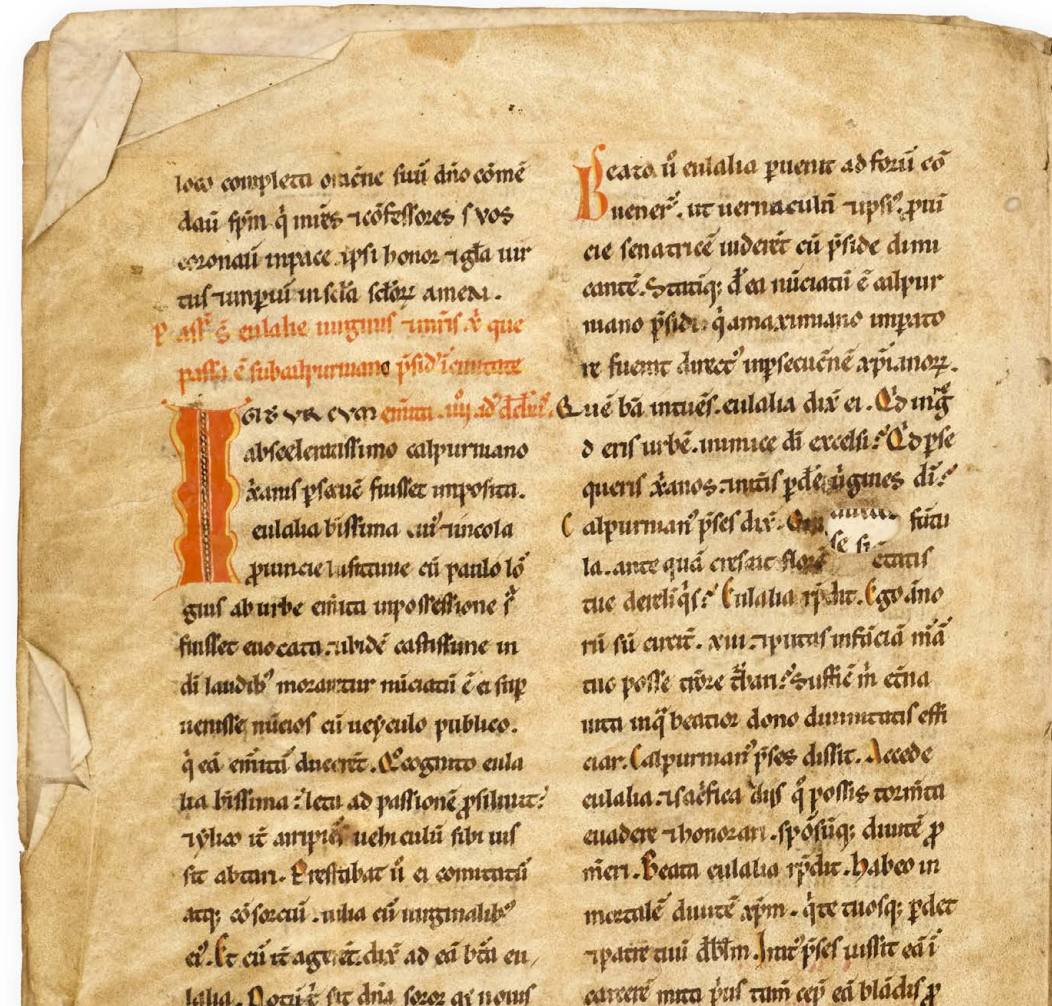 loco completa oracõne suũ dño cõme
daũ spm̃ q̃ mr̃es ⁊cõfessores suos
coronaũ inpace. ipsi honor ⁊gl̃a uir
tus in scl̃a scl̃oꝝ amen.
Pass̃ s̃ eulalie uirginis ⁊mr̃is. x̃ que
passa ẽ subcalpurniano p̃sid̾ ĩciuitate
emerita. iiij id̾ dec̃bris.
IGITVR CVM
abscelentissimo calpurniano
x̃anis p̃secuc̃ fuisset imposita.
eulalia b̃issima ciui᷒ ⁊incola
ꝓuincie lusitanie cũ paulo lõ
gius ab urbe em̃ita inpossessione s̃
fuisset euocata. ubidẽ castissime in
di laudib᷒ moraretur nũciatũ ẽ ei sup̱
uenisse nũcios cũ ueyculo publico.
q̃ eã em̃itã ducerẽt. Q̊ cognito eula
lia b̃issima: leta ad passionẽ ꝓsiliuit:
⁊ylico it̃ arripiẽs uehiculũ sibi ius
sit aptari. Prestabat ũ ei comitatũ
atq; cõsorciũ. iulia cũ uirginalib᷒
ei᷒. Et cũ it̃ ager̃et. dix̃ ad eã bt̃a eu
lalia. Notũ t̃ sit dña soror qr̃ nouis
Beata ũ eulalia ꝑuenit ad forũ cõ
uener̃. ut uernaculã ⁊ipsi᷒. ꝓuĩ
cie senatricẽ uiderẽt cũ p̃side dimi
cantẽ. Statiq; d̾ ea nũciatũ ẽ calpur
niano p̃sidi. q̃ amaximiano imꝑato
re fuerat direct᷒ inp̱secuc̃nẽ xp̃ianoꝝ.
Quẽ bã intuẽs. eulalia dix̃ ei. Q̊d ing̃
d eris urbẽ. inimice di excelsi: Q̊d p̱se
queris x̃anos. ⁊inĩtis p̱de ũgines di:
Calpurnian᷒ p̃ses dix̃.
la. ante quã crescat florẽ etatis
tue derelĩq̃s: Eulalia r̃pdit. Ego ãno
rũ sũ circit̃. xiii. ⁊putas infãciã mã
tuo posse t̃rore t̃bari: Suffic̃ m̃ et̃na
uita inq̃ beatior dono diuinitatis effi
ciar. Calpurnian᷒ p̃ses dissit. Accede
eulalia. ⁊sac̃fica diis q̃ possis torm̃ta
euadere ⁊honorari. spõsũq; diuitẽ ꝓ
m̃eri. Beata eulalia r̃pdit. Habeo in
mortalẽ diuitẽ xp̃m. q̃ te tuosq; p̱det
⁊patrẽ tuũ dbl̃m. Irat᷒ p̃ses iussit eã ĩ
carcerẽ mitti p̃us tam̃ cep̃ eã blãdis ꝓ